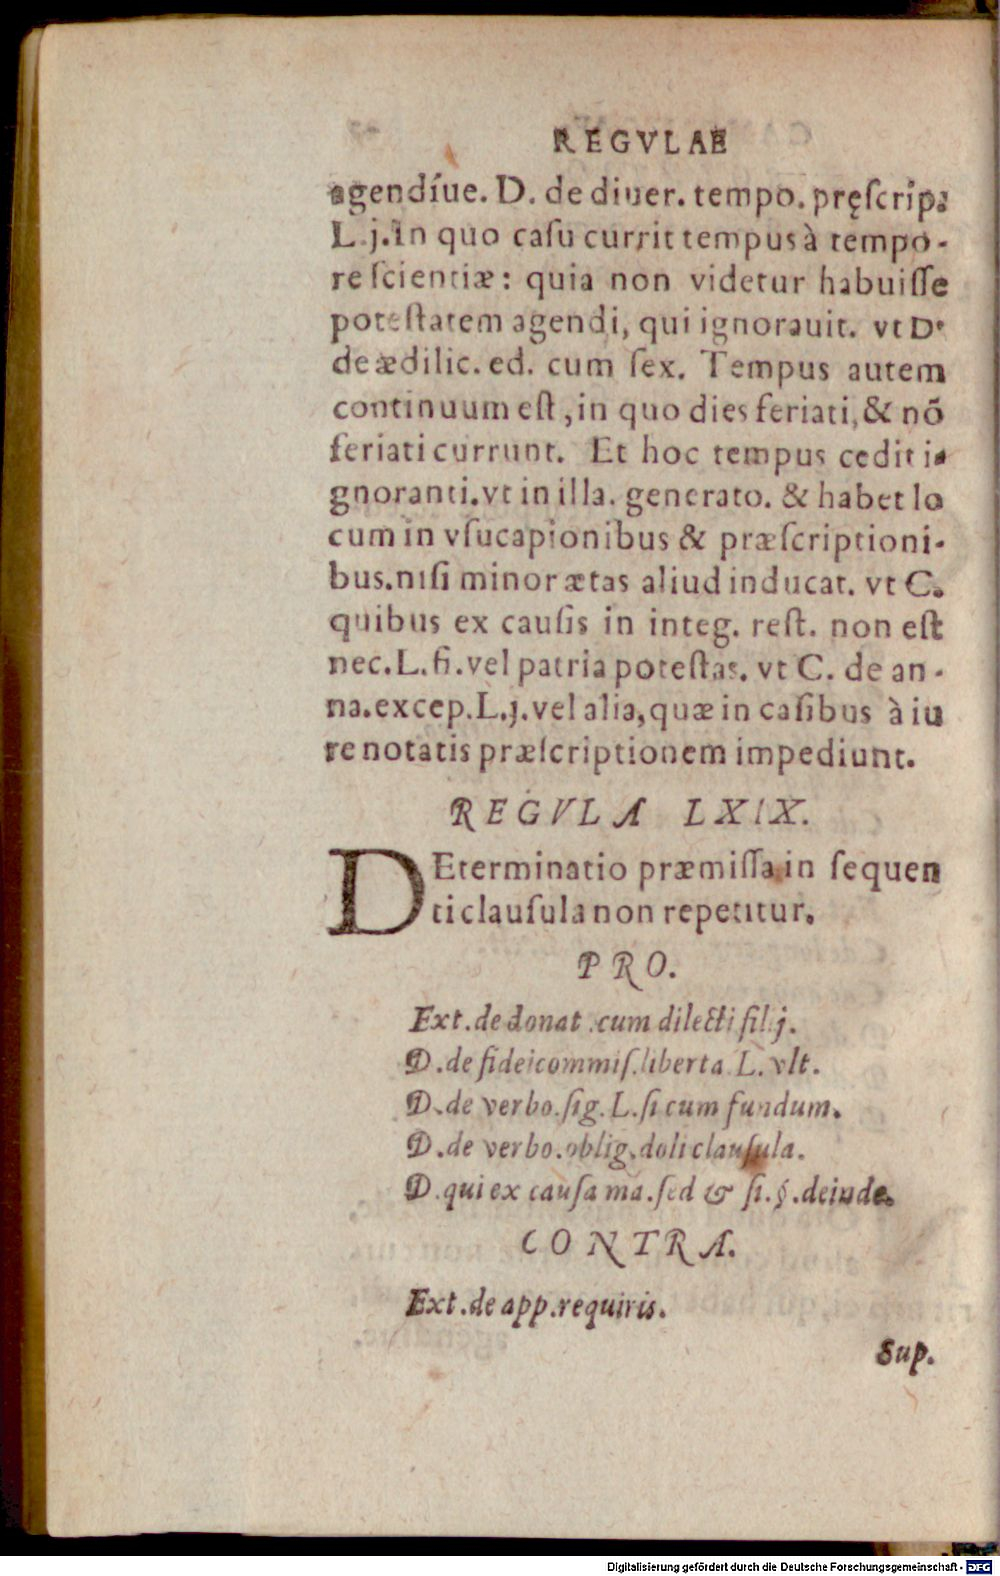 REGVLAE
agendíue. D. de diuer. tempo. pręſcrip.
L.j. In quo caſu currit tempus à tempo-
re ſcientiæ: quia non videtur habuiſſe
poteſtatem agendi, qui ignorauit. vt D.
de ædilic. ed. cum ſex. Tempus autem
continuum eſt, in quo dies feriati, & nō
feriati currunt. Et hoc tempus cedit i-
gnoranti. vt in illa. generato. & habet lo
cum in vſucapionibus & præſcriptioni-
bus. niſi minor ætas aliud inducat. vt C.
quibus ex cauſis in integ. reſt. non eſt
nec. L. fi. vel patria poteſtas. vt C. de an-
na. excep. L.j. vel alia, quæ in caſibus à iu
re notatis præſcriptionem impediunt.
REGVLA LXIX.
DEterminatio præmiſſa in ſequen
ti clauſula non repetitur.
PRO.
Ext. de donat. cum dilecti fil.j.
D. de fideicommiſ. liberta. L. vlt.
D. de verbo. ſig. L. ſi cum fundum.
D. de verbo. oblig. doli clauſula.
D. qui ex cauſa ma. ſed & ſi. §. deinde.
CONTRA.
Ext. de app. requiris.
Sup.
Digitalisierung gefördert durch die Deutsche Forschungsgemeinschaft - DFG